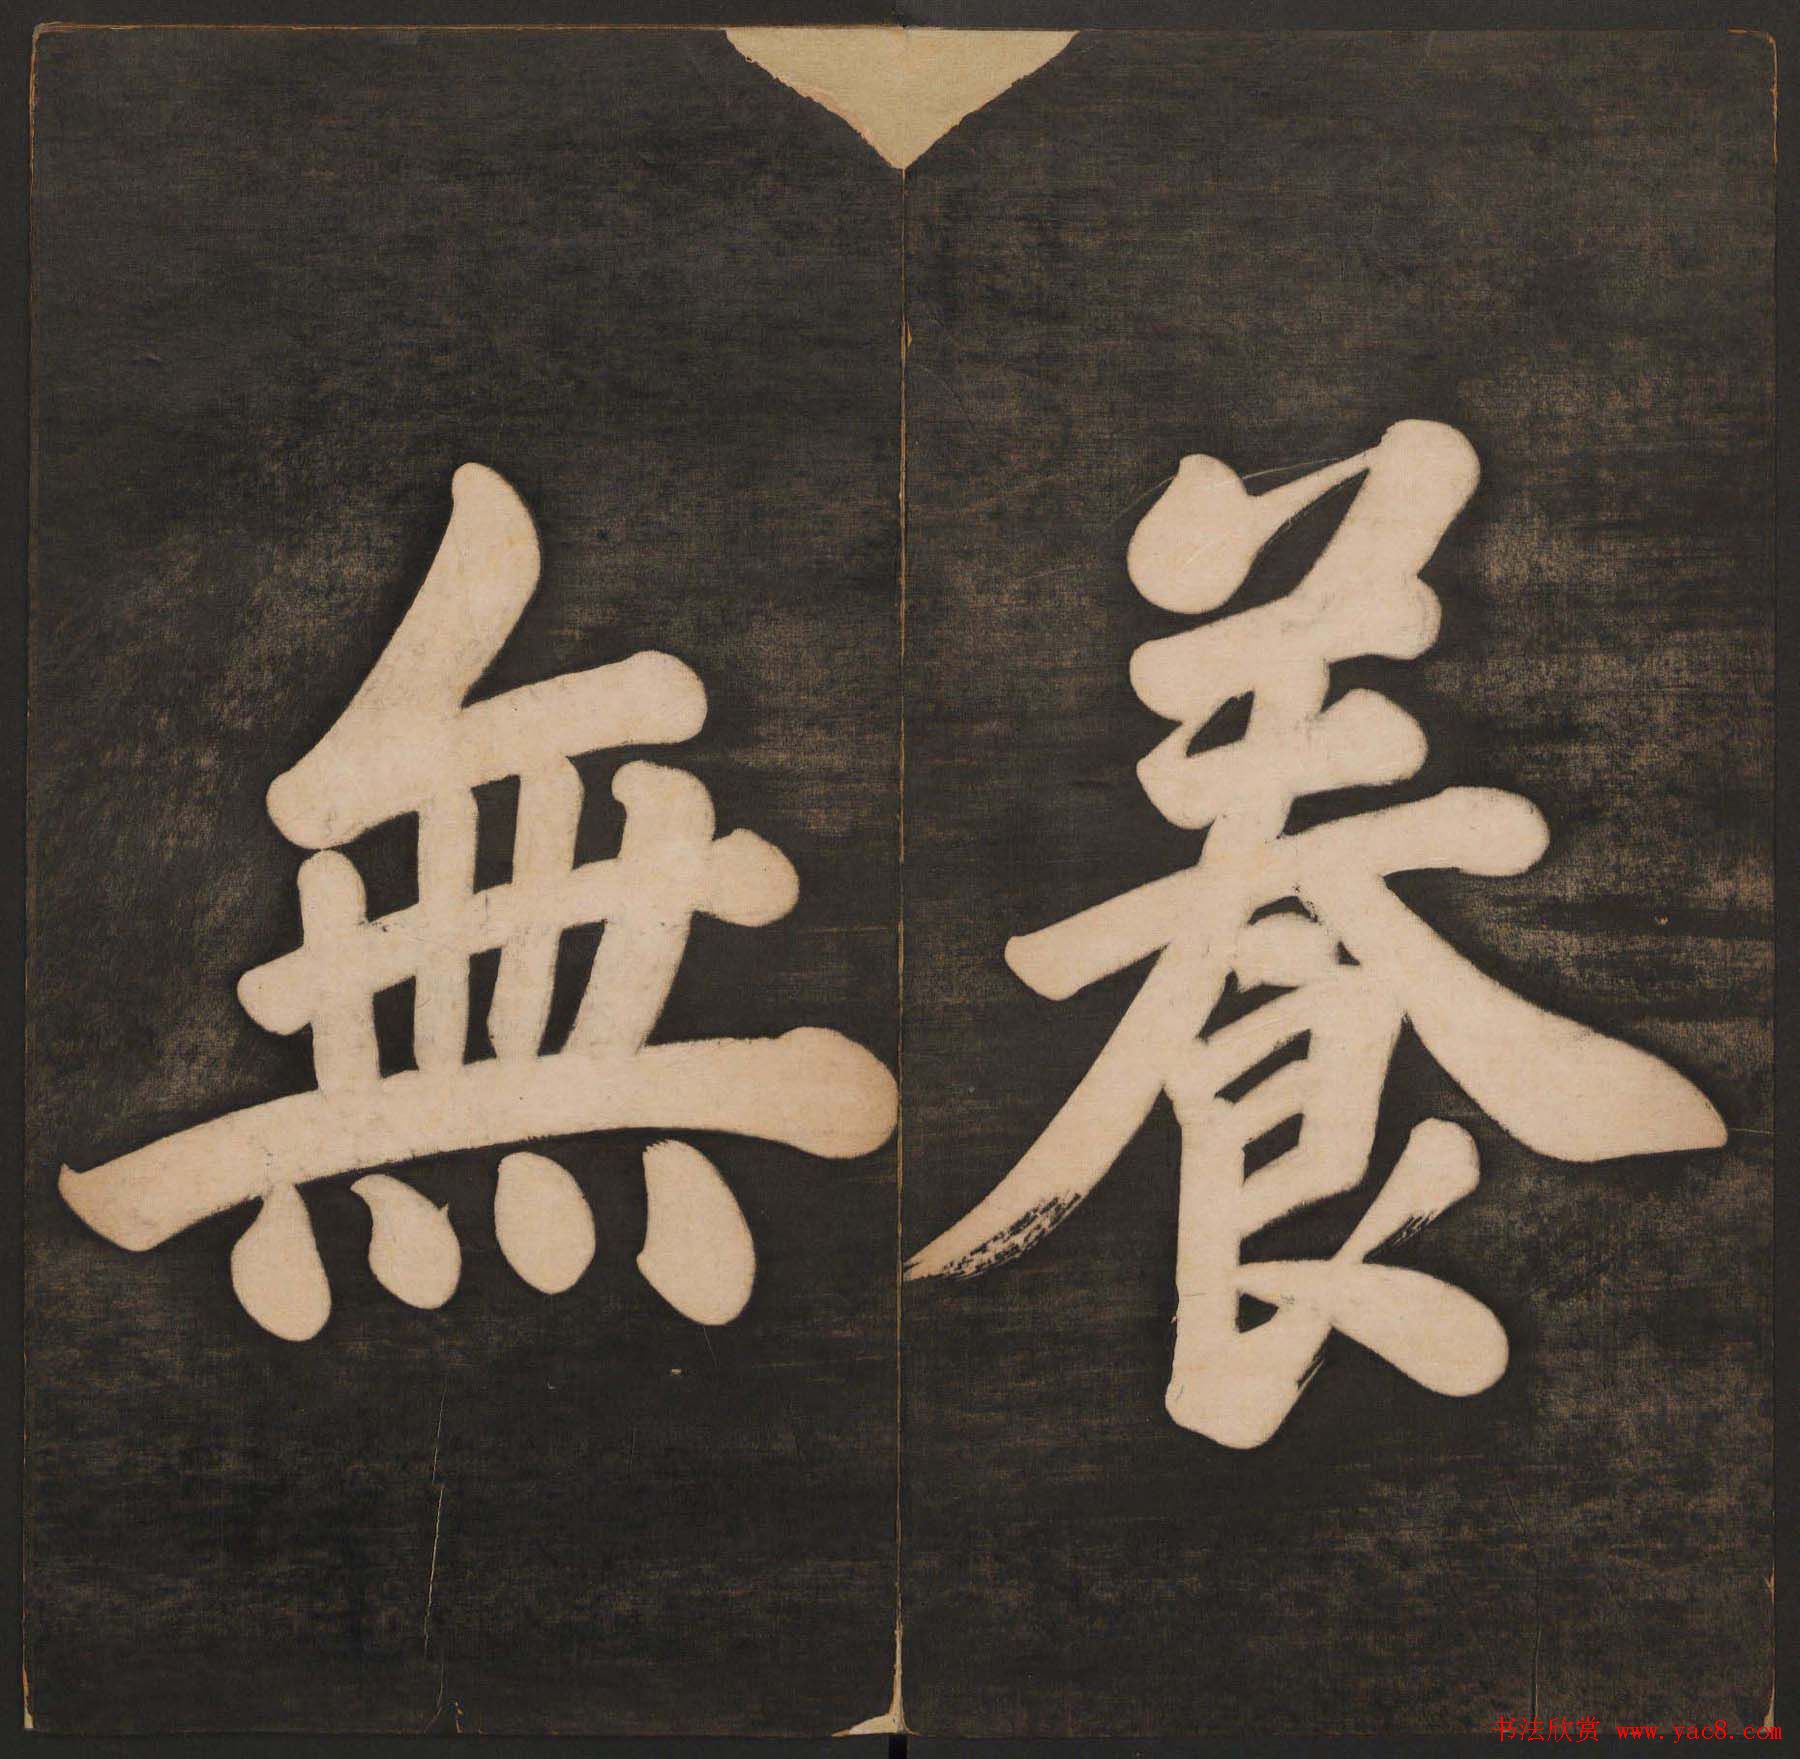 養
無
书法欣赏 www.yac8.com